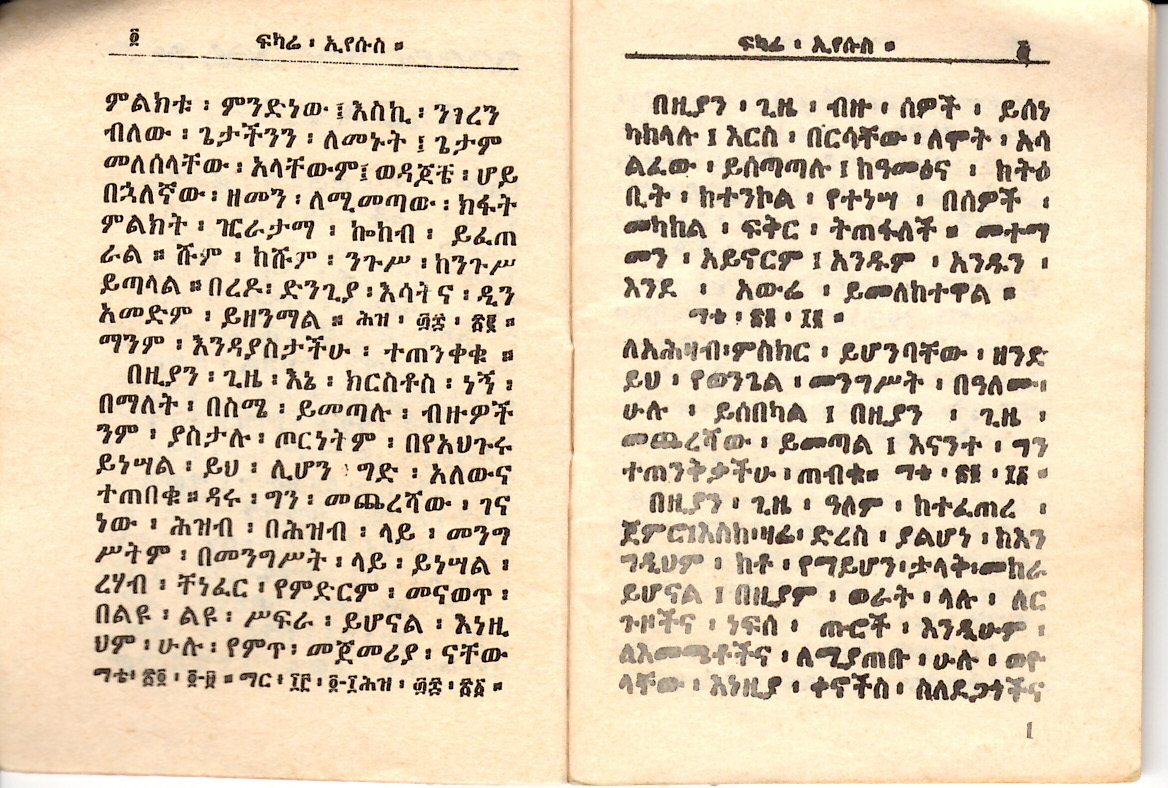 ፬ ፍካሬ ፡ ኢየሱስ ።
ምልክቱ ፡ ምንድነው ፤ እስኪ ፡ ንገረን
ብለው ፡ ጌታችንን ፡ ለመኑት ፤ ጌታም
መለሰላቸው ፡ አላቸውም ፤ ወዳጆቼ ፡ ሆይ
በኋለኛው ፡ ዘመን ፡ ለሚመጣው ፡ ክፋት
ምልክት ፡ ዢራታማ ፡ ኰከብ ፡ ይፈጠ
ራል ። ሹም ፡ ከሹም ፡ ንጉሥ ፡ ከንጉሥ
ይጣላል ። በረዶ ፡ ድንጊያ ፡ እሳትና ፡ ዲን
አመድም ፡ ይዘንማል ። ሕዝ ፡ ፴፰ ፡ ፳፪ ።
ማንም ፡ እንዳያስታችሁ ፡ ተጠንቀቁ ።
በዚያን ፡ ጊዜ ፡ እኔ ፡ ክርስቶስ ፡ ነኝ ፡
በማለት ፡ በስሜ ፡ ይመጣሉ ፡ ብዙዎች
ንም ፡ ያስታሉ ፡ ጦርነትም ፡ በየአህጉሩ
ይነሣል ፡ ይህ ፡ ሊሆን ፡ ግድ ፡ አለውና
ተጠበቁ ። ዳሩ ፡ ግን ፡ መጨረሻው ፡ ገና
ነው ፡ ሕዝብ ፡ በሕዝብ ፡ ላይ ፡ መንግ
ሥትም ፡ በመንግሥት ፡ ላይ ፡ ይነሣል ፡
ረሃብ ፡ ቸነፈር ፡ የምድርም ፡ መናወጥ ፡
በልዩ ፡ ልዩ ፡ ሥፍራ ፡ ይሆናል ፡ እነዚ
ህም ፡ ሁሉ ፡ የምጥ ፡ መጀመሪያ ፡ ናቸው
ማቴ ፡ ፳፬ ፡ ፬-፱ ። ማር ፡ ፲፫ ፡ ፬-፲ ሕዝ ፡ ፴፰ ፡ ፳፩ ።
ፍካሬ ፡ ኢየሱስ ።
በዚያን ፡ ጊዜ ፡ ብዙ ፡ ሰዎች ፡ ይሰነ
ካከላሉ ፤ እርስ ፡ በርሳቸው ፡ ለሞት ፡ አሳ
ልፈው ፡ ይሰጣጣሉ ፤ ከዓመፅና ፡ ከትዕ
ቢት ፡ ከተንኮል ፡ የተነሣ ፡ በሰዎች ፡
መካከል ፡ ፍቅር ፡ ትጠፋለች ። መተማ
መን ፡ አይኖርም ፤ አንዱም ፡ አንዱን ፡
እንደ ፡ አውሬ ፡ ይመለከተዋል ።
ማቴ ፡ ፳፬ ፡ ፲፪ ።
ለአሕዛብ ፡ ምስክር ፡ ይሆንባቸው ፡ ዘንድ
ይህ ፡ የወንጌል ፡ መንግሥት ፡ በዓለሙ ፡
ሁሉ ፡ ይሰበካል ፤ በዚያን ፡ ጊዜ ፡
መጨረሻው ፡ ይመጣል ፤ እናንተ ፡ ግን
ተጠንቅቃችሁ ፡ ጠብቁ ። ማቴ ፡ ፳፬ ፡ ፲፬ ።
በዚያን ፡ ጊዜ ፡ ዓለም ፡ ከተፈጠረ ፡
ጀምሮ ፡ እስከ ፡ ዛሬ ፡ ድረስ ፡ ያልሆነ ፡ ከእን
ግዲህም ፡ ከቶ ፡ የማይሆን ፡ ታላቅ ፡ መከራ
ይሆናል ፤ በዚያም ፡ ወራት ፡ ላሉ ፡ ለር
ጉዞችና ፡ ነፍሰ ፡ ጡሮች ፡ እንዲሁም ፡
ልእመጫቶችና ፡ ለሚያጠቡ ፡ ሁሉ ፡ ወዮ
ላቸው ፡ እነዚያ ፡ ቀኖችስ ፡ ስለደጋጎችና
1